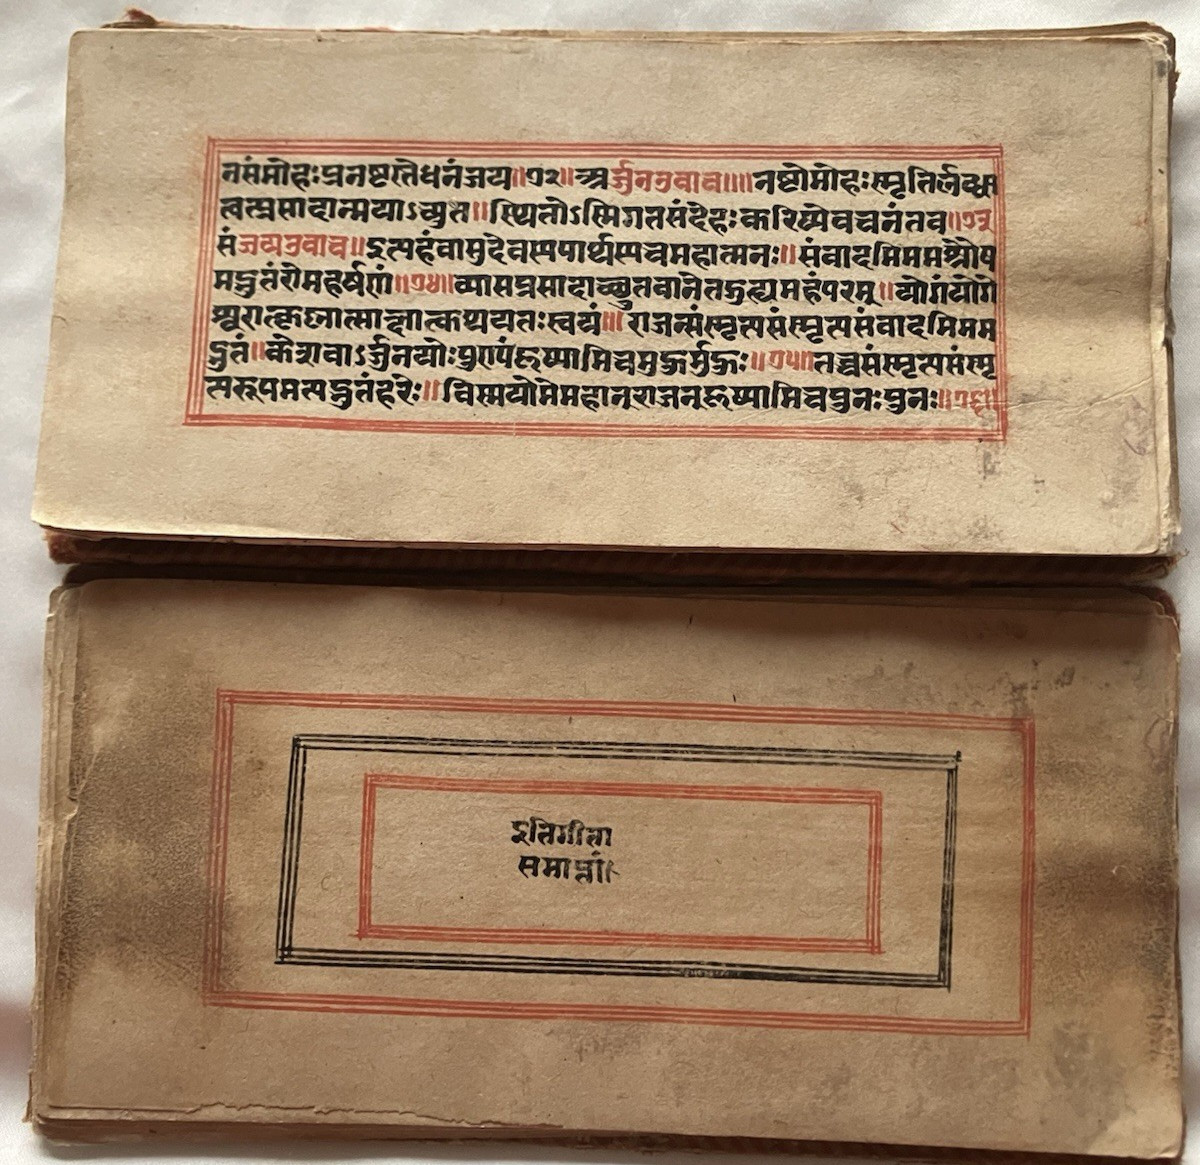 नसंमोहःप्रनष्टस्तेधनंजय॥७२॥अर्जुनउवाच॥॥नष्टोमोहःस्मृतिर्लब्धा
त्वत्प्रसादान्मयाऽच्युत॥स्थितोऽस्मिगतसंदेहःकरिष्येवचनंतव॥७३
संजयउवाच॥इत्यहंवासुदेवस्यपार्थस्यचमहात्मनः॥संवादमिममश्रौष
मद्भुतंरोमहर्षणं॥७४॥व्यासप्रसादाच्छ्रुतवानेतद्गुह्यमहंपरम्॥योगंयोगे
श्वरात्कृष्णात्साक्षात्कथयतःस्वयं॥राजन्संस्मृत्यसंस्मृत्यसंवादमिमम
द्भुतं॥केशवाऽर्जुनयोःपुण्यंहृष्यामिचमुहुर्मुहुः॥७५॥तच्चसंस्मृत्यसंस्मृ
त्यरूपमत्यद्भुतंहरेः॥विस्मयोमेमहान्राजन्हृष्यामिचपुनःपुनः॥७६॥
इतिगीता
समाप्तां।